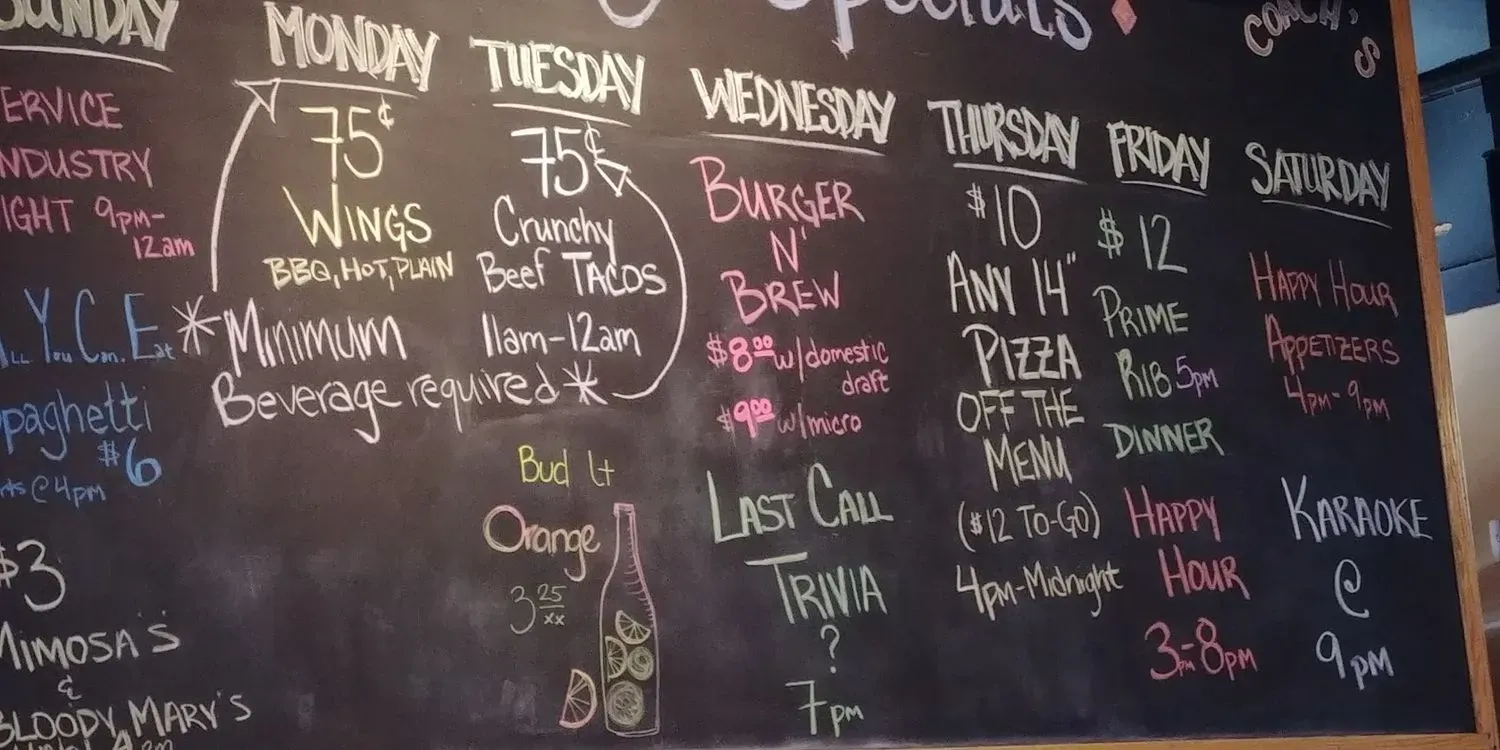 Specials
COACH'S
SUNDAY
SERVICE
INDUSTRY
NIGHT 9pm-
12am
ALL YOU Can. Eat
Spaghetti
$6
@ 4pm
$3
MIMOSA'S
&
BLOODY MARY'S
MONDAY
75¢
WINGS
BBQ, HOT, PLAIN
*Minimum
Beverage required*
TUESDAY
75¢
Crunchy
Beef TACOS
11am-12am
Bud Lt
Orange
3 25/xx
WEDNESDAY
BURGER
N'
BREW
$8.00 w/domestic
draft
$9.00 w/micro
LAST CALL
TRIVIA
?
7pm
THURSDAY
$10
ANY 14"
PIZZA
OFF THE
MENU
($12 TO-GO)
4pm-Midnight
FRIDAY
$12
PRIME
RIB 5pm
DINNER
HAPPY
HOUR
3pm-8pm
SATURDAY
HAPPY HOUR
APPETIZERS
4pm-9pm
KARAOKE
@
9pm